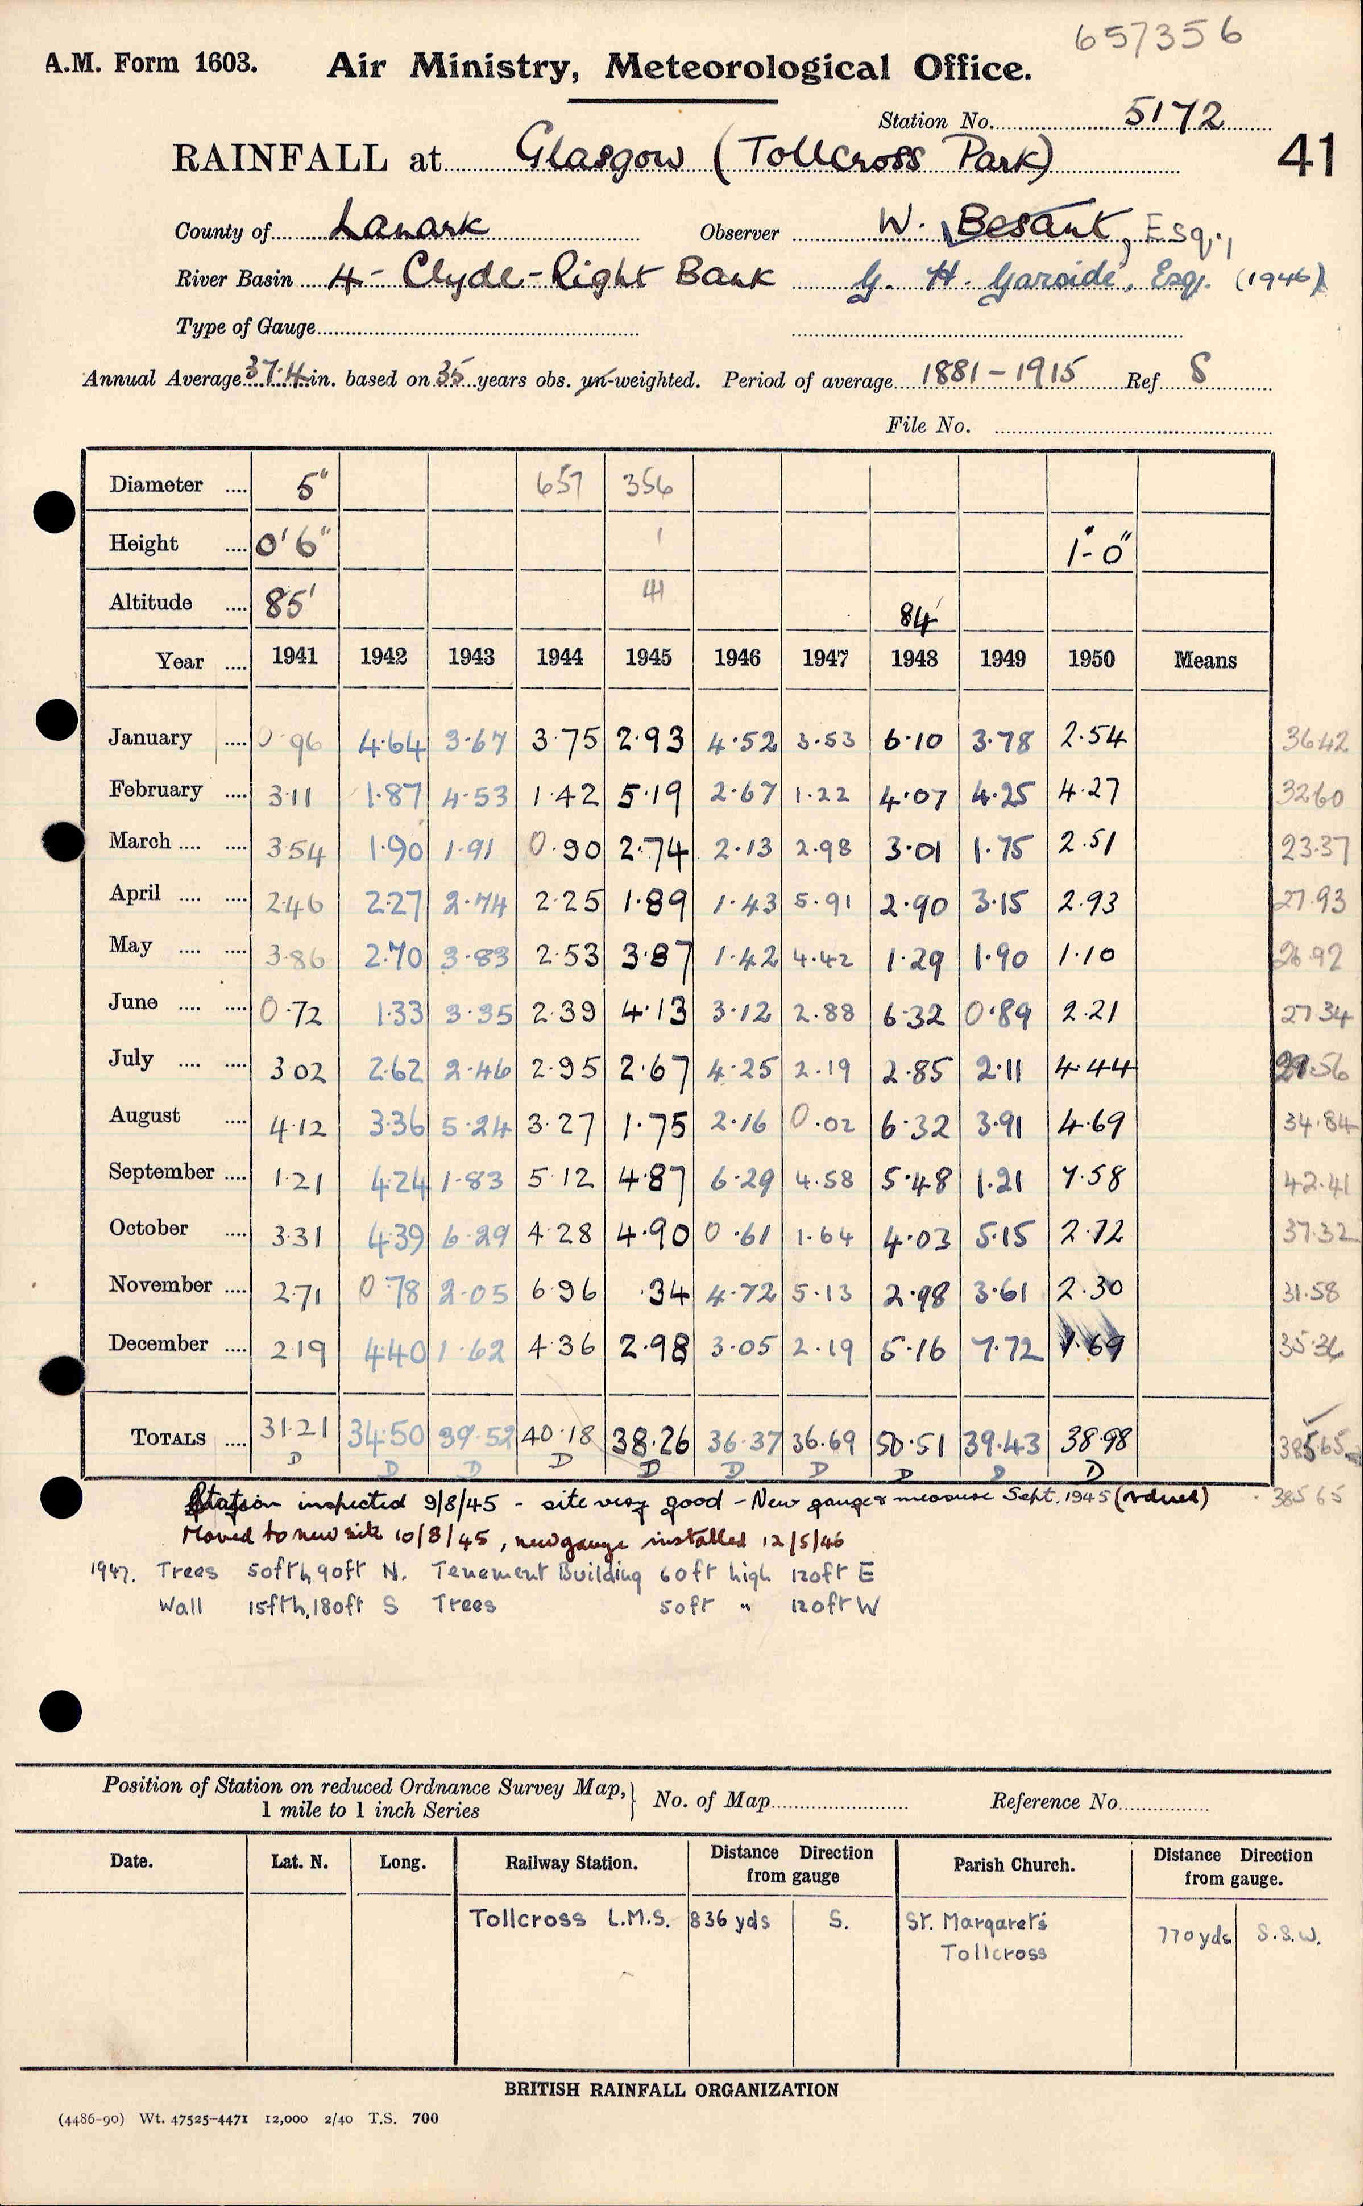 657356
A.M. Form 1603. Air Ministry, Meteorological Office.
Station No. 5172
RAINFALL at Glasgow (Tollcross Park) 41
County of Lanark Observer W. Besant, Esq.,
River Basin 4 - Clyde - Right Bank G. H. Garside, Esq. (1946)
Type of Gauge
Annual Average 37.4 in. based on 35 years obs. un-weighted. Period of average 1881 - 1915 Ref S
File No.
Diameter .... 5" 657 356
Height .... 0' 6" 1 1'-0"
Altitude .... 85' 41 84'
Year .... 1941 1942 1943 1944 1945 1946 1947 1948 1949 1950 Means
January .... 0.96 4.64 3.67 3.75 2.93 4.52 3.53 6.10 3.78 2.54 36.42
February .... 3.11 1.87 4.53 1.42 5.19 2.67 1.22 4.07 4.25 4.27 32.60
March .... .... 3.54 1.90 1.91 0.90 2.74 2.13 2.98 3.01 1.75 2.51 23.37
April .... .... 2.46 2.27 2.74 2.25 1.89 1.43 5.91 2.90 3.15 2.93 27.93
May .... .... 3.86 2.70 3.83 2.53 3.87 1.42 4.42 1.29 1.90 1.10 26.92
June .... .... 0.72 1.33 3.35 2.39 4.13 3.12 2.88 6.32 0.89 2.21 27.34
July .... .... 3.02 2.62 2.46 2.95 2.67 4.25 2.19 2.85 2.11 4.44 29.56
August .... 4.12 3.36 5.24 3.27 1.75 2.16 0.02 6.32 3.91 4.69 34.84
September .... 1.21 4.24 1.83 5.12 4.87 6.29 4.58 5.48 1.21 7.58 42.41
October .... 3.31 4.39 6.29 4.28 4.90 0.61 1.64 4.03 5.15 2.72 37.32
November .... 2.71 0.78 2.05 6.96 .34 4.72 5.13 2.98 3.61 2.30 31.58
December .... 2.19 4.40 1.62 4.36 2.98 3.05 2.19 5.16 7.72 1.69 35.36
TOTALS .... 31.21 34.50 39.52 40.18 38.26 36.37 36.69 50.51 39.43 38.98 385.65
D D D D D D D D D D
Station inspected 9/8/45 - site very good - New gauge & measure Sept. 1945 (advised) 385 65
Moved to new site 10/8/45, new gauge installed 12/5/46
1947. Trees 50ft h, 90ft N. Tenement Building 60ft high 120ft E
Wall 15ft h, 180ft S Trees 50ft " 120ft W
Position of Station on reduced Ordnance Survey Map, 1 mile to 1 inch Series No. of Map Reference No.
Date. Lat. N. Long. Railway Station. Distance Direction from gauge Parish Church. Distance Direction from gauge.
Tollcross L.M.S. 836 yds S. St. Margaret's Tollcross 770 yds S.S.W.
BRITISH RAINFALL ORGANIZATION
(4486-90) Wt. 47525-4471 12,000 2/40 T.S. 700